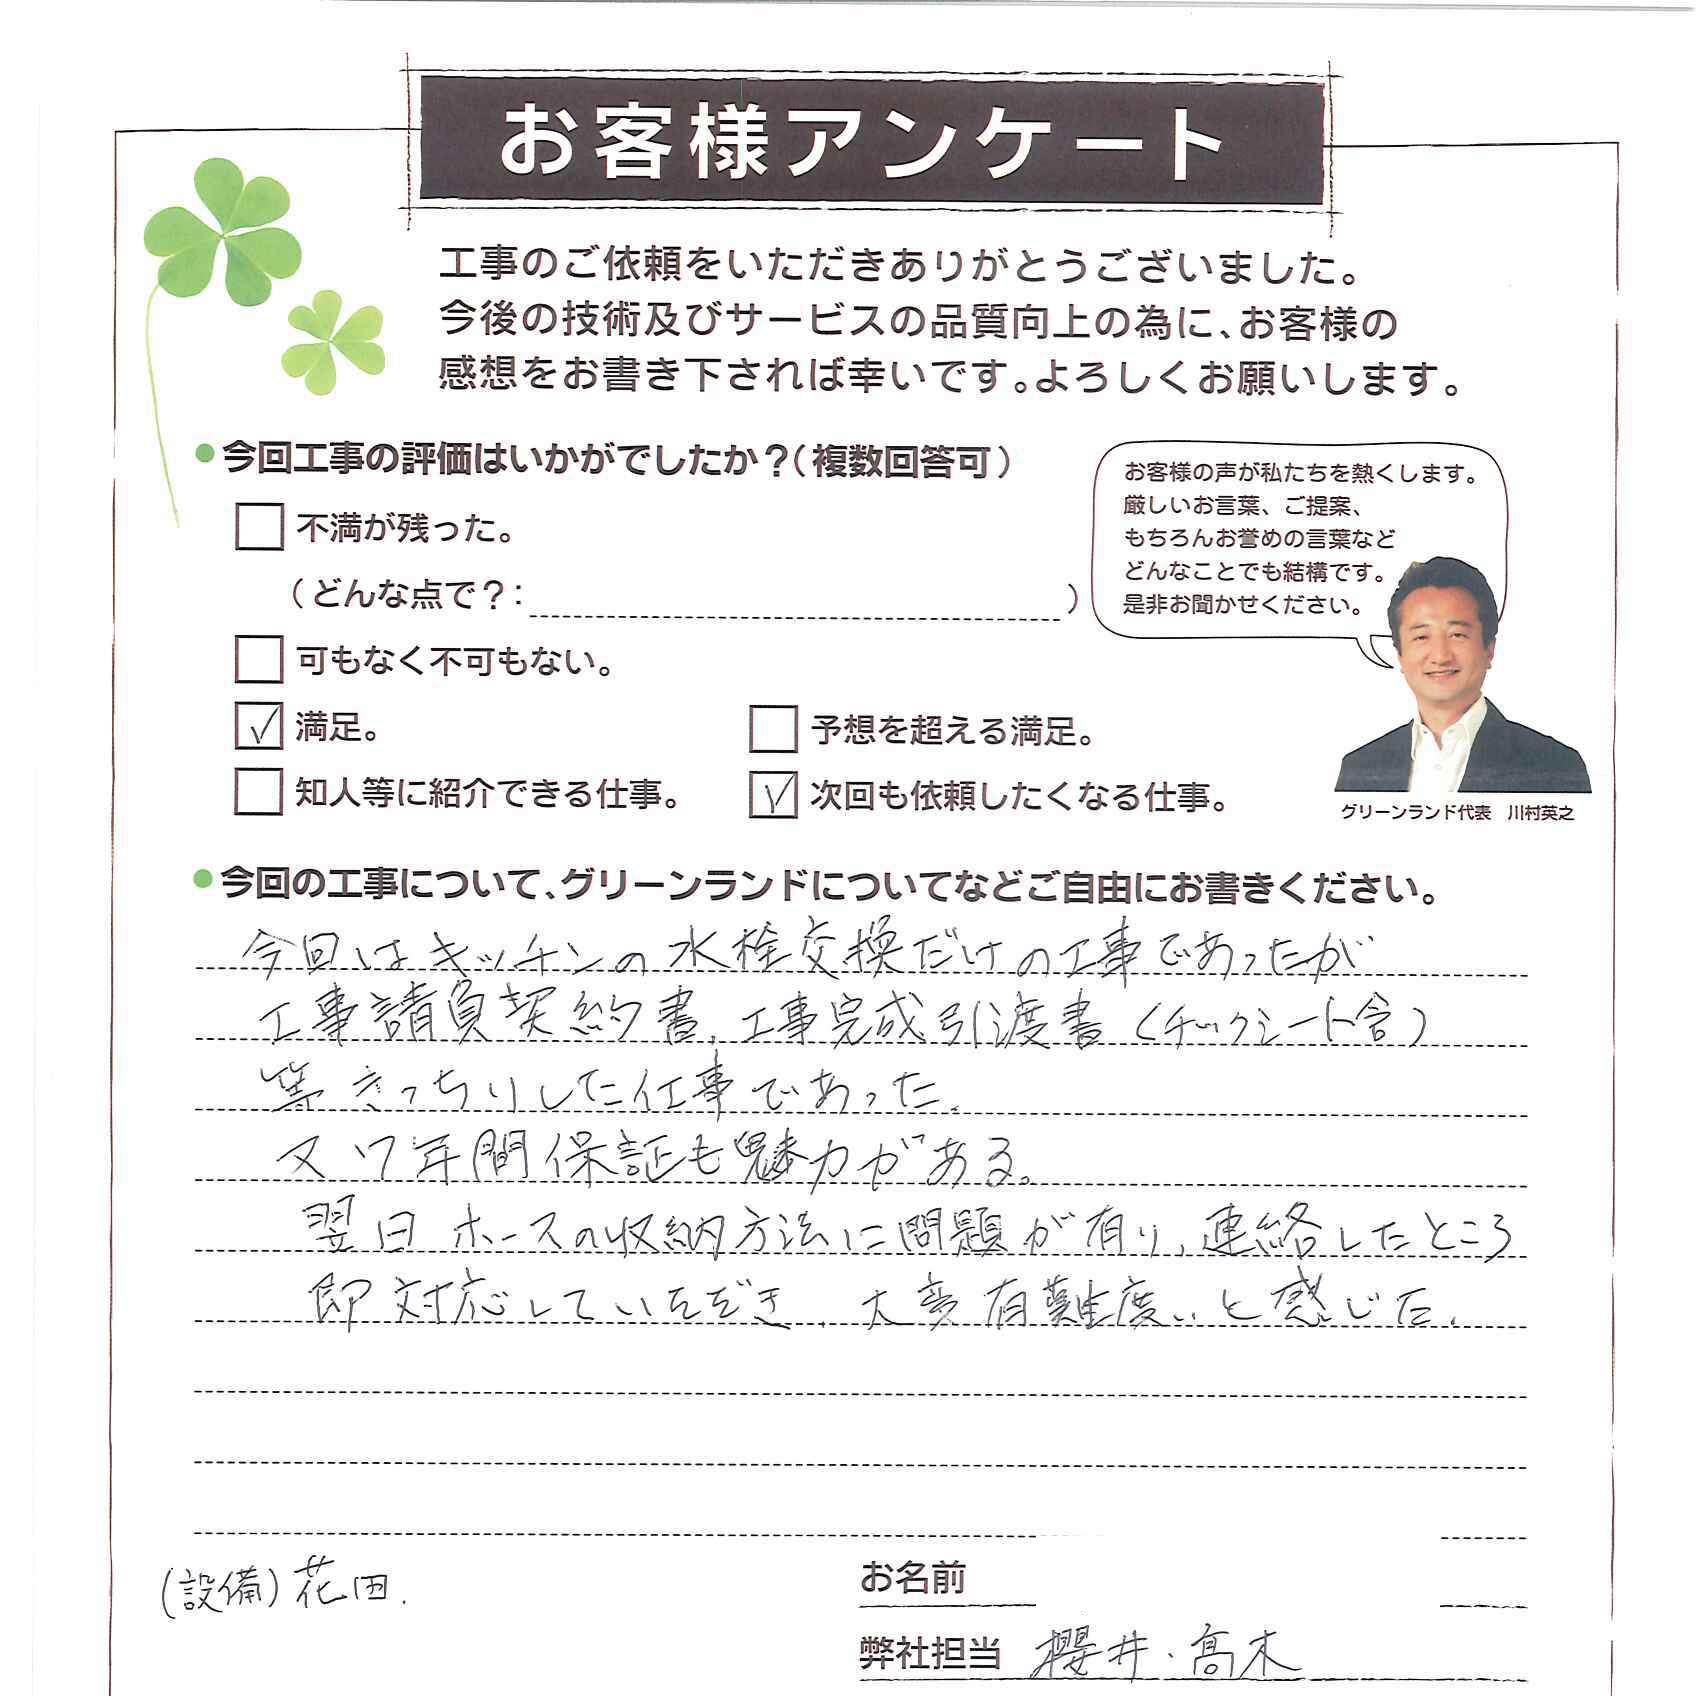 お客様アンケート
工事のご依頼をいただきありがとうございました。
今後の技術及びサービスの品質向上の為に、お客様の
感想をお書き下されば幸いです。よろしくお願いします。
今回工事の評価はいかがでしたか?(複数回答可)
不満が残った。
(どんな点で?: )
可もなく不可もない。
満足。
予想を超える満足。
知人等に紹介できる仕事。
次回も依頼したくなる仕事。
お客様の声が私たちを熱くします。
厳しいお言葉、ご提案、
もちろんお誉めの言葉など
どんなことでも結構です。
是非お聞かせください。
グリーンランド代表 川村英之
今回の工事について、グリーンランドについてなどご自由にお書きください。
今回はキッチンの水栓交換だけの工事であったが
工事請負契約書、工事完成引渡書(チックシート含)
等きっちりした仕事であった。
又17年間保証も魅力がある。
翌日ホースの収納方法に問題が有り、連絡したところ
即対応していただき、大変有難度いと感じた。
(設備)花田.
お名前
弊社担当 櫻井・髙木